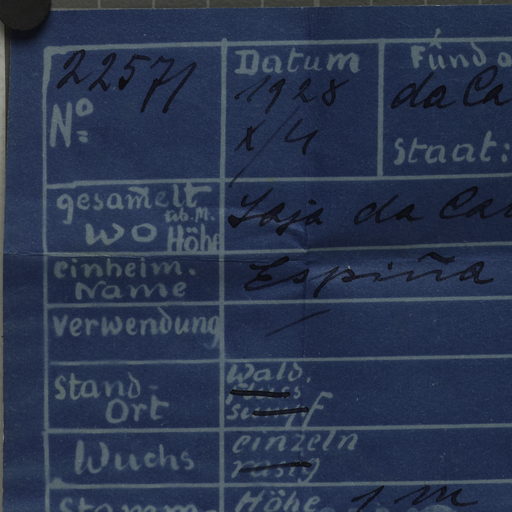 22571
Nº
Datum
1928
X/4
Fundo
da Ca
Staat:
gesam̅elt
wo
üb. M.
Höhe
Laja da Car
einheim.
Name
Espiña
Verwendung
Stand-
Ort
Wald.
Fluss
Sumpf
Wuchs
einzeln
rasig
Stamm
Höhe 1 m